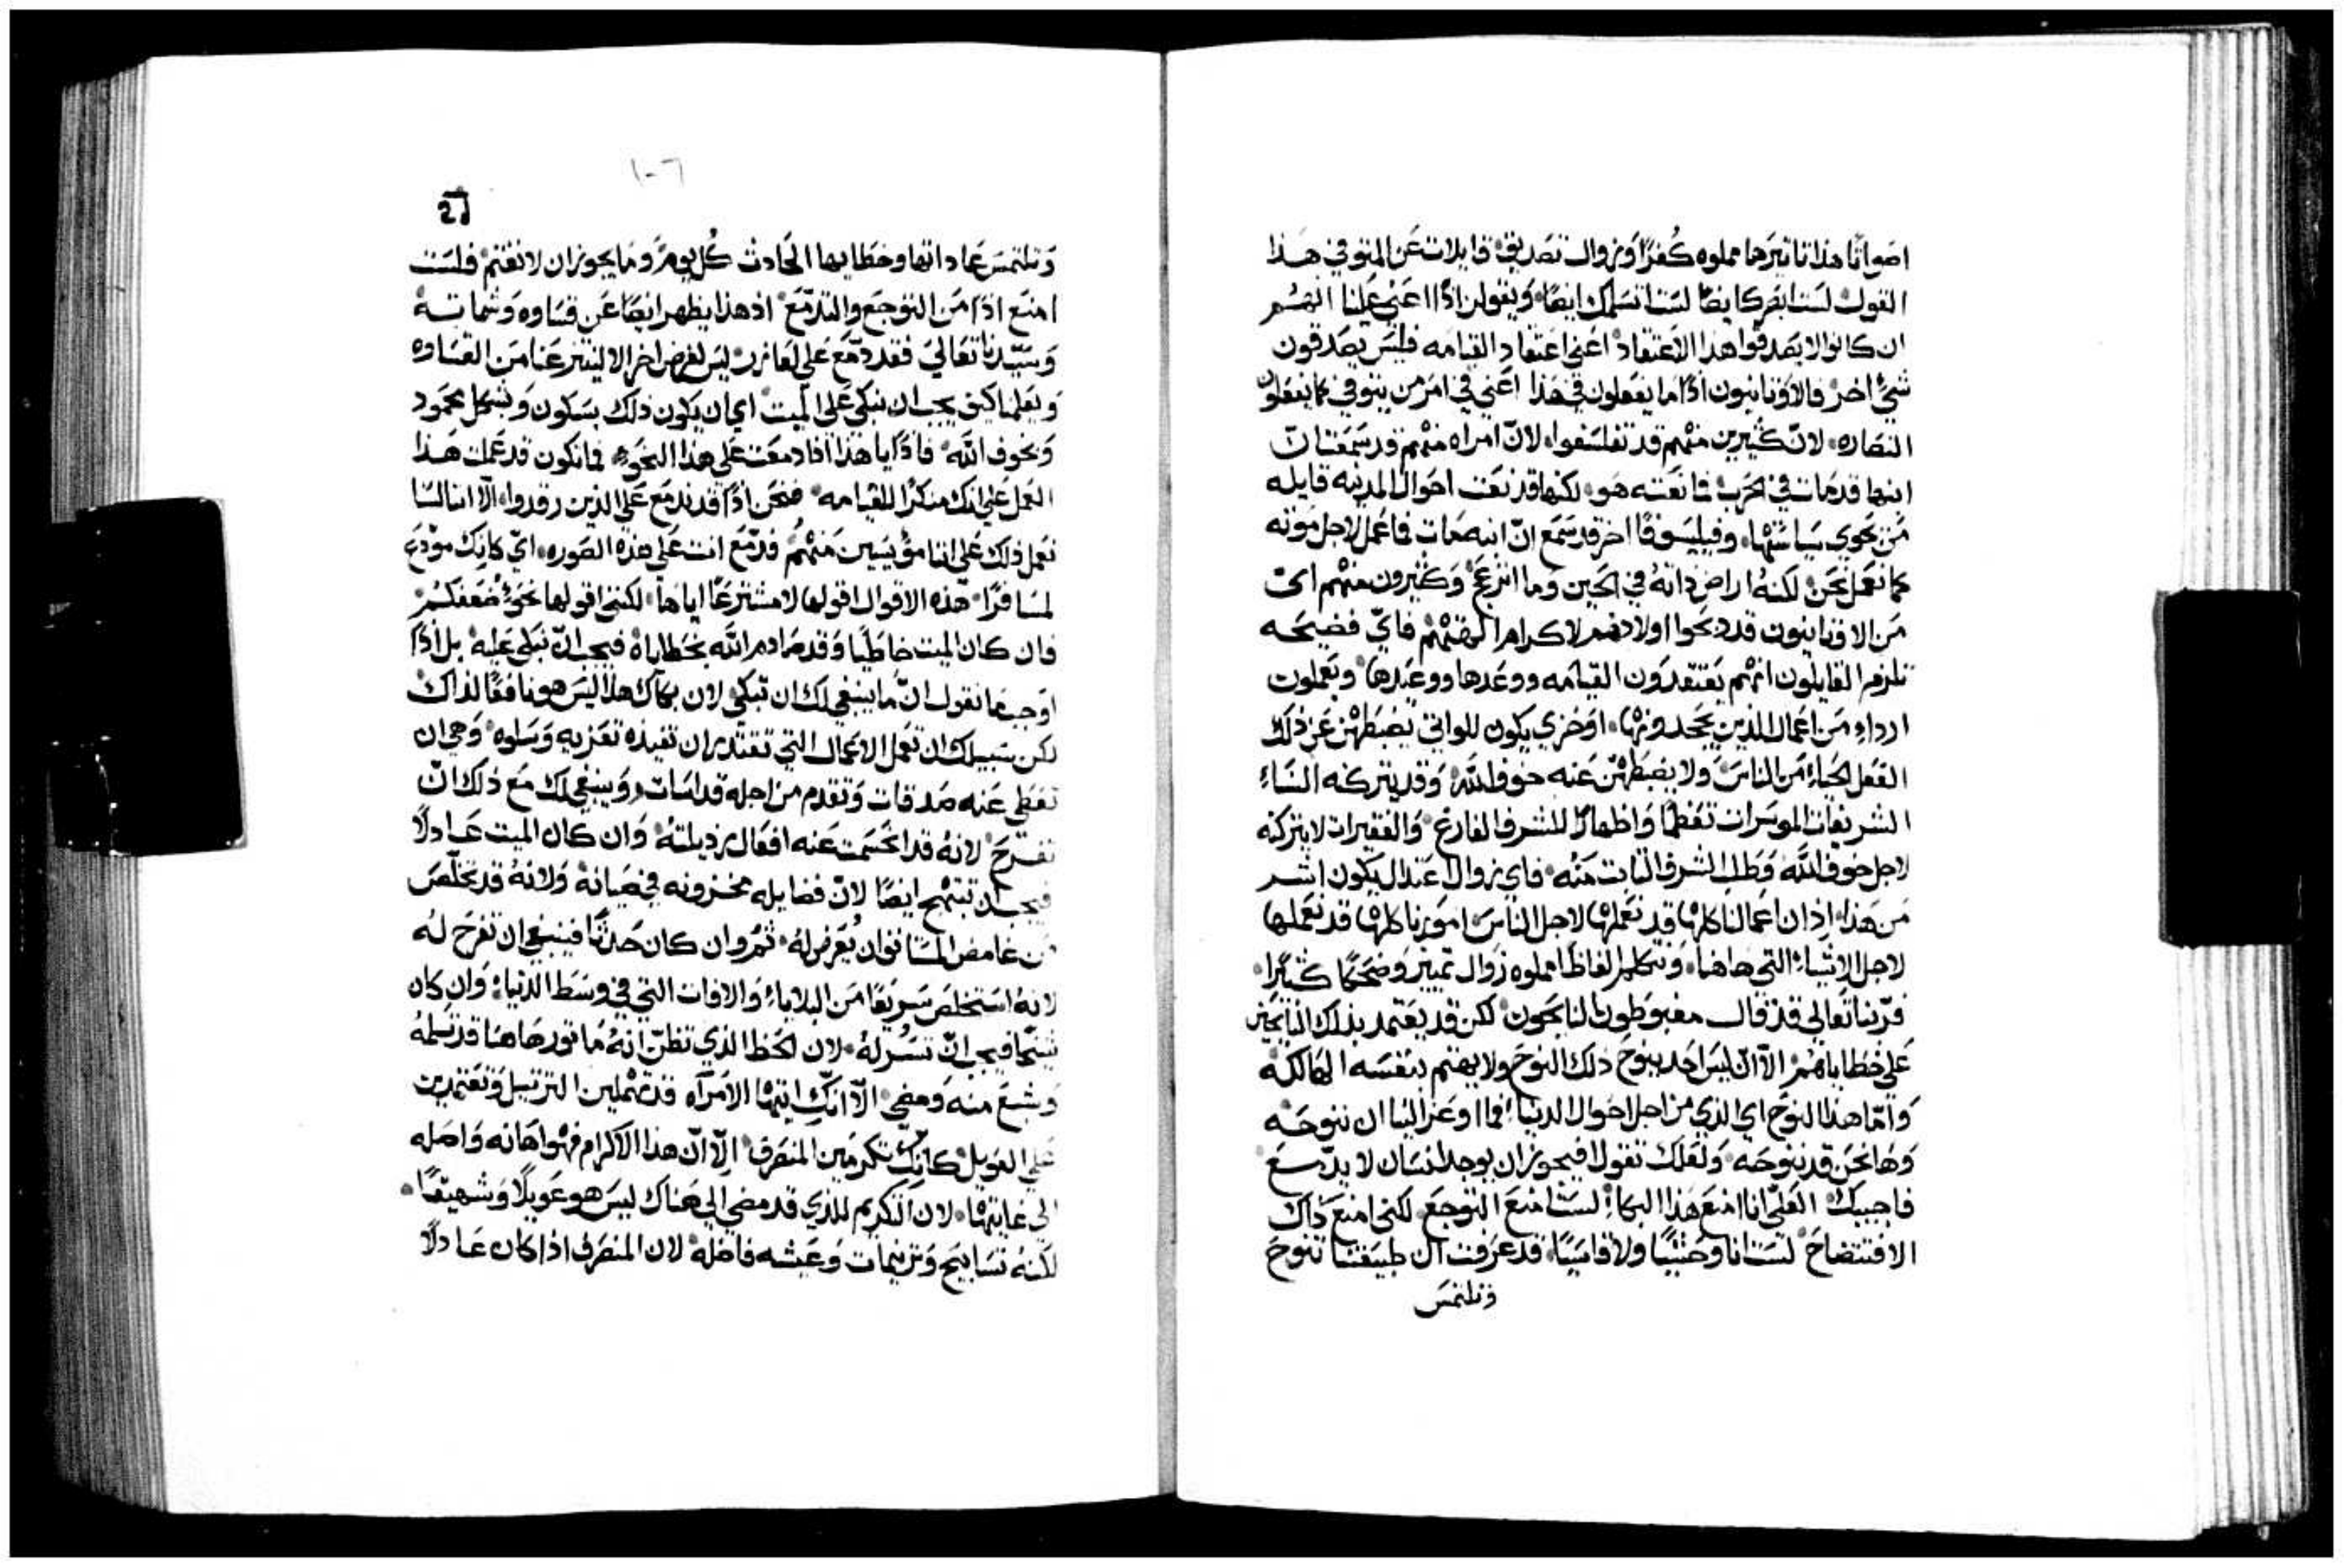 اصواتًا هذا تاتيرها مملوه كُفرًا وزوال تصديق قايلات عن المتوفي هذا
القول لست ابصرك ايضًا لست اتسلمك ايضًا ويقولن اذًا اعني علينا انهُم
ان كانوا لا يصدقوا هذا الاعتقاد اعني اعتقاد القيامه فليس يصدقون
شيً اخر فالاوثانيون اذًا ما يفعلون في هذا اعني في امر من يتوفي كما يفعلون
النصاره لانّ كثيرين منهم قد تفلسفوا لانّ امراه منهم قد سمعت انّ
ابنها قد مات في الحرب فما نعته هو لكنها قد نعت احوال المدينه قايله
من يحوي سياستها وفيلسوفًا اخر قد سمع انّ ابنه مات فما عمل لاجل موته
كما نعمل نحن لكنهُ اراض ذاتهُ في الحين وما انزعج وكثيرون منهم اي
من الاوثانيون قد دبحوا اولادهم لاكرام الهتهم فايّ فضيحه
تلزم القايلون انهم يعتقدون القيامه ووعدها ووعيدها ويعملون
ارداءِ من اعمال الذين يجحدونها او خزي يكون للواتي يضبطهن عن ذلك
الفعل الحياءِ من الناس ولا يضبطهنّ عنه خوف الله وقد يتركنه النساءِ
الشريفات الموسرات تعظمًا واظهارًا للشرف الفارغ والفقيرات لا يتركنه
لاجل خوف الله وطلب الشرف الثابت منه فاي زوال اعتدال يكون اشر
من هذا اذ ان اعمالنا كلها قد نعملها لاجل الناس امورنا كلها قد نعملها
لاجل الاشياءِ التي هاهنا ونتكلم الفاظًا مملوه زوال تمييز وضحكًا كثيرًا
فربّنا تعالي قد قال مغبوطون النايحون لكن قد يعتمد بذلك النايحين
علي خطاياهُم الا انّ ليس احد ينوح ذلك النوح ولا يهتم بنفسه الهالكه
وامّا هذا النوح اي الذي من اجل احوال الدنيا فما اوعز الينا ان ننوحه
وها نحن قد ننوحه ولعلك تقول افيجوز ان يوجد انسان لا يدّمع
فاجيبك العلّي انا امنع هذا البكاءِ لست امنع التوجع لكني امنع ذاك
الافتضاح لست انا وحشيًا ولا قاسيًا قد عرفت انّ طبيعتنا تنوح
وتلتمس
١٠٦
وتلتمس عاداتها وخطابها الحادث كُل يوم وما يجوز ان لا نغتنم فلست
امنع اذًا من التوجع والتدمّع اذ هذا يظهر ايضًا عن قساوه وشماته
وسيّدنا تعالي فقد دمّع علي لعازر ليس لغرض اخر الا لينتزعنا من القساوه
ويعلمنا كيف يجب ان نبكي علي الميت اي ان يكون ذلك بسكون وبشكل محمود
وبخوف الله فاذًا يا هذا اذا دمعت علي هذا النحو فما تكون قد عملت هذا
العمل علي انك منكرًا للقيامه فنحن اذًا قد ندمع علي الذين رقدوا الّا اننا لسنا
نعمل ذلك علي اننا مؤيسين منهُم فدمّع انت علي هذه الصوره ايّ كانك مودّع
لمسافرًا هذه الاقوال اقولها لا مشترعًا اياها لكنني اقولها نحوَ ضعفكُم
فان كان الميت خاطيًا وقد صادم الله بخطاياهُ فيجب انّ نبكي عليه بل اذًا
اوجب ما نقول انّ ما ينبغي لك ان تبكي لان بكاك هذا ليس هو نافعًا لذاك
لكن سبيلك ان تعمل الاعمال التي تقتدر ان تفيده تعزيه وسلوه وهي ان
تعطي عنه صدقات وتقدم من اجله قداسات وينبغي لك مع ذلك انّ
تفرح لانهُ قد انحسمت عنه افعال رذيلتهُ وان كان الميت عادلًا
فيجب ان تبتهج ايضًا لانّ فضايله مخزونه في صيانه ولانهُ قد تخلّص
من غامض المستانف ان يُعرض لهُ ثم وان كان حدثًا فينبغي ان تفرح لهُ
لانهُ استخلص سريعًا من البلاياءِ والافات التي في وسط الدنيا وان كان
شيخًا فيجب انّ تسُر لهُ لان الحظ الذي تظنّ انهُ ماتور هاهنا قد تسلمهُ
وشبع منه ومضي الّا انكِ ايتها الامراه قد تهملين الترتيل وتعتمدين
علي العويل كانكِ تكرمين المنصرف الّا انّ هذا الاكرام فهو اهانه واصله
الي غايتها لان التكريم للذي قد مضي الي هناك ليس هو عويلًا وشهيقًا
لكنهُ تسابيح وترنيمات وعيشه فاضله لان المنصرف اذا كان عادلًا